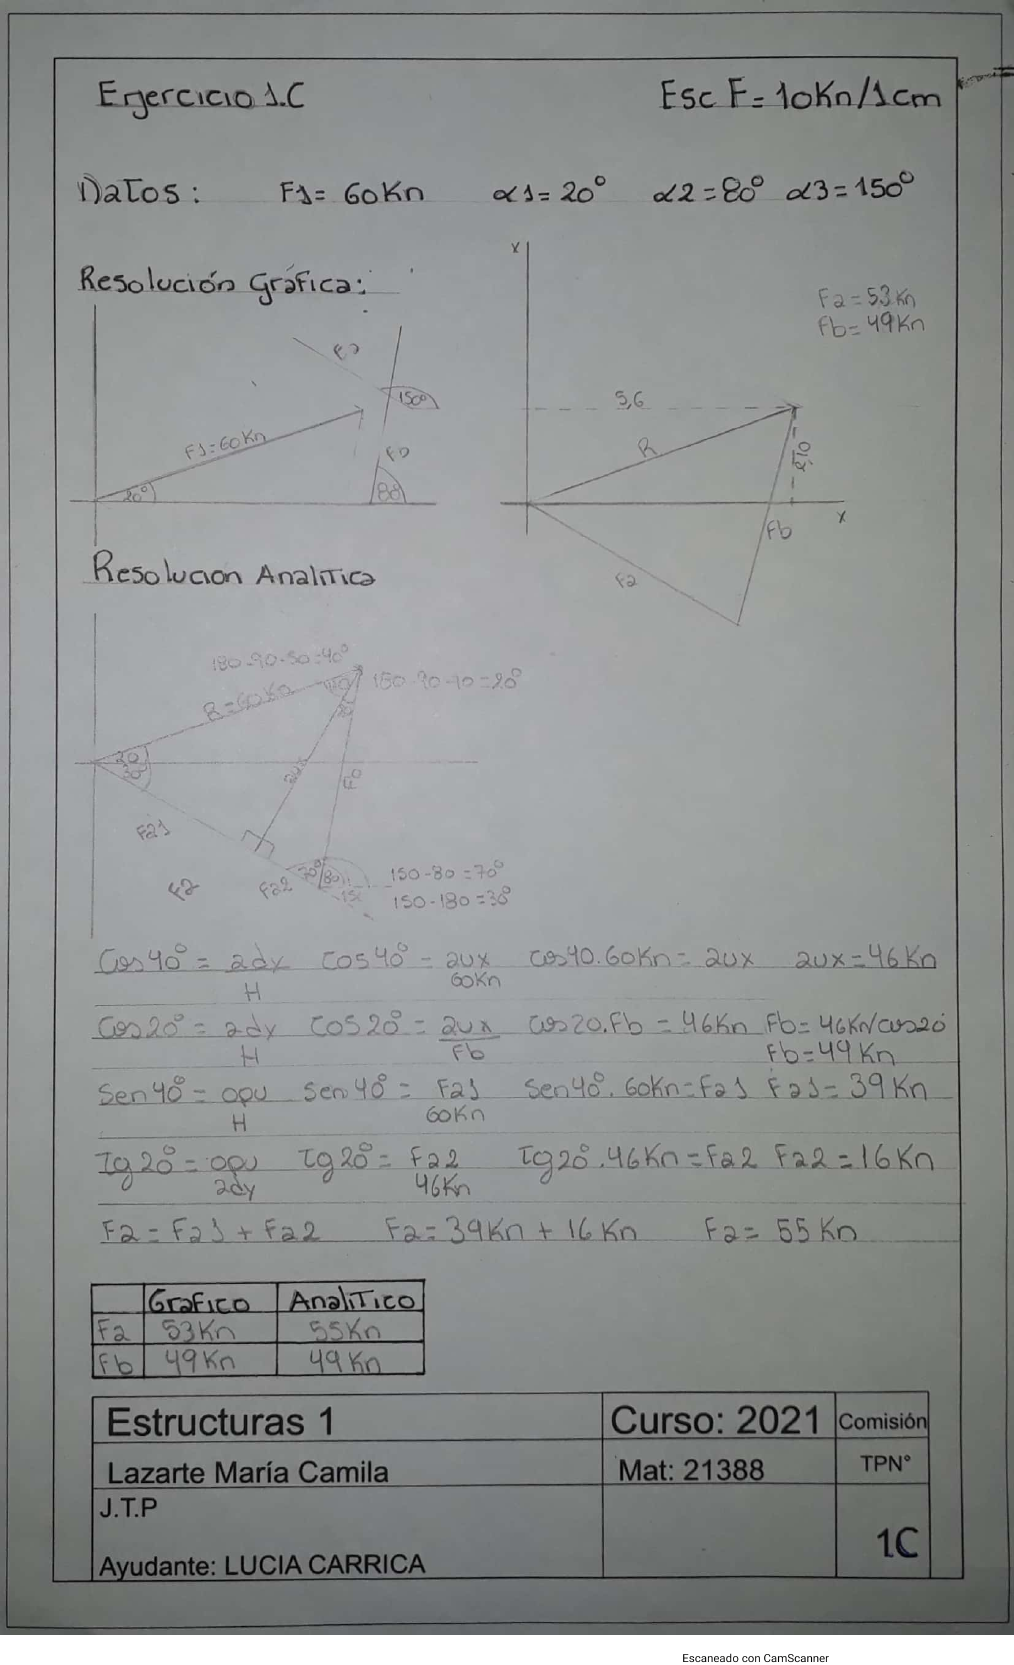 Ejercicio 1.C Esc F= 10Kn/1cm
Datos: F1= 60Kn α1=20° α2=80° α3=150°
x
Resolución Gráfica:
Fa=53Kn
Fb=49Kn
150°
5,6
F1=60Kn
R
20°
80
x
Fb
Fa
Resolucion Analitica
180-90-50=40°
R=60Kn
aux
Fb
Fa1
Fa
Fa2
70°
80
150-80=70°
150-180=30°
Cos40°= ady/H Cos40°= aux/60Kn Cos40.60Kn=aux aux=46Kn
Cos20°= ady/H Cos20°= aux/Fb Cos20.Fb=46Kn Fb=46Kn/cos20
Fb=49Kn
Sen40°= opu/H Sen40°= Fa1/60Kn Sen40°.60Kn=Fa1 Fa1=39Kn
Tg20°= opu/ady Tg20°= Fa2/46Kn Tg20°.46Kn=Fa2 Fa2=16Kn
Fa=Fa1+Fa2 Fa=39Kn+16Kn Fa=55Kn
Grafico Analitico
Fa 53Kn 55Kn
Fb 49Kn 49Kn
Estructuras 1 Curso: 2021 Comisión
Lazarte María Camila Mat: 21388 TPN°
J.T.P
1C
Ayudante: LUCIA CARRICA
Escaneado con CamScanner